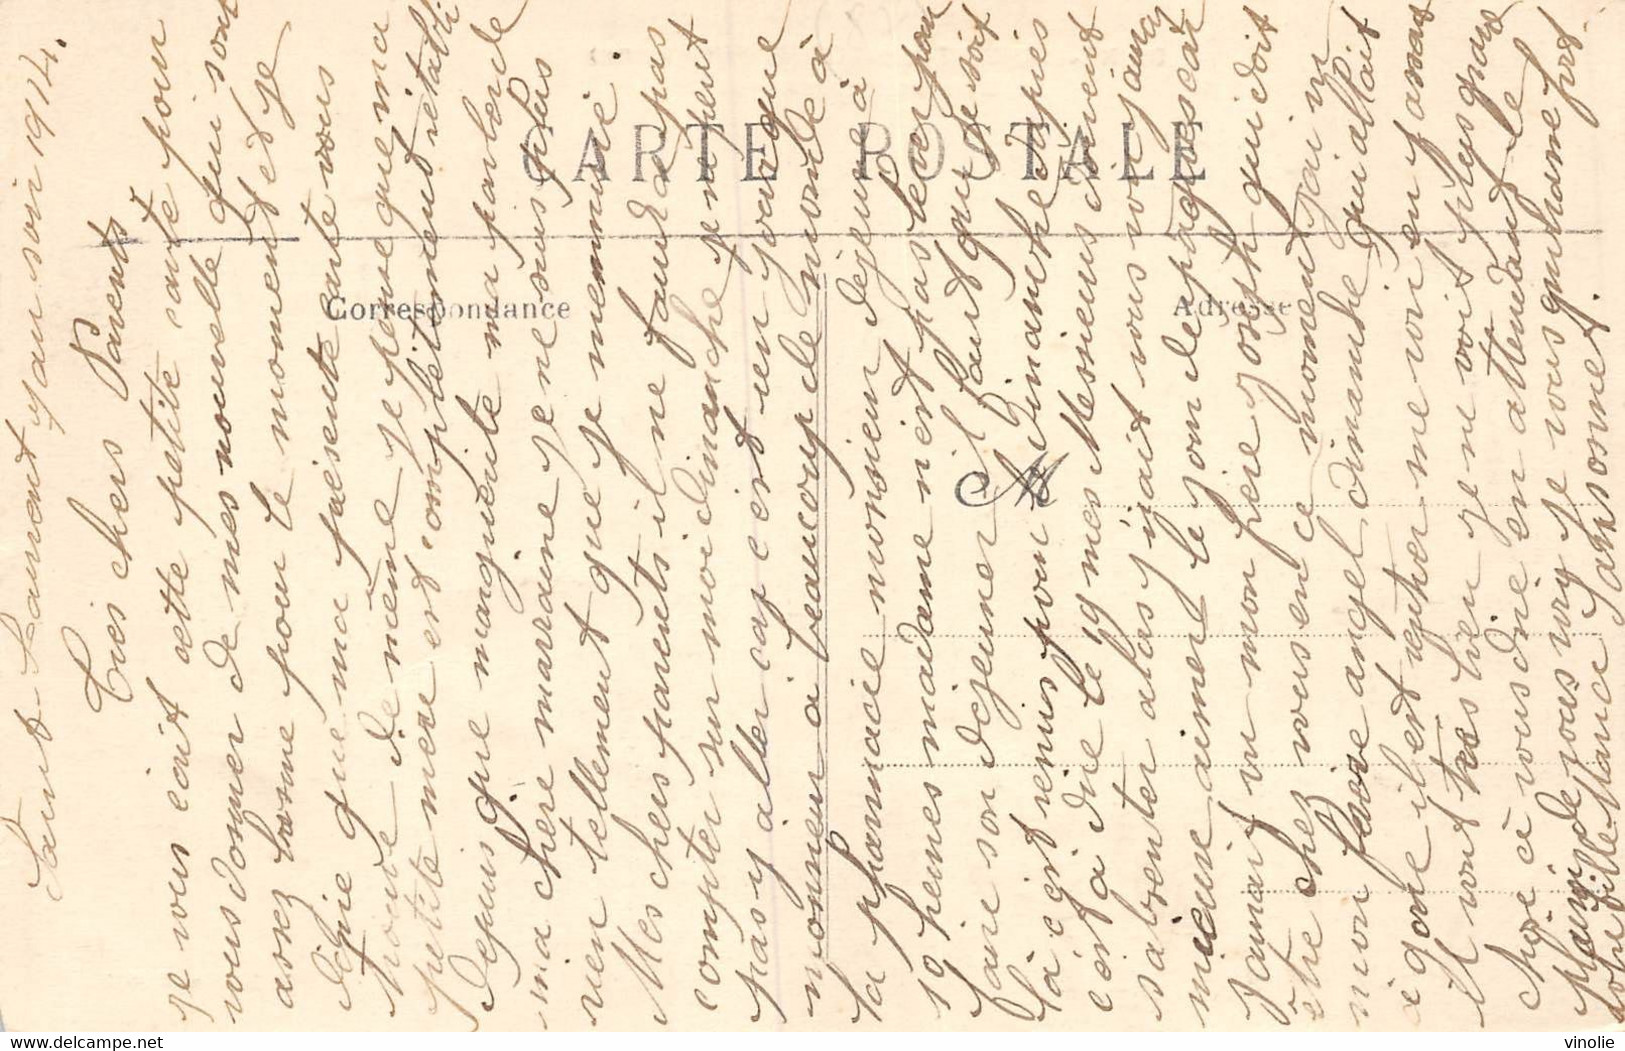 CARTE POSTALE
Correspondance
Adresse
Saint Laurent 9 au soir 1914.
Très chers Parents
je vous écrit cette petite carte pour
vous donner de mes nouvelle qui sont
assez bonne pour le moment et je
désire que ma présente carte vous
trouve de même je pense que ma
petite mère est complètement rétabli
depuis que marguerite ma parler de
ma chère marraine je ne suis plus
rien tellement que je mennuie.
Mes chers parents il ne faudra pas
compter sur moi dimanche je ne peut
pas y aller car c'est un jour que
monsieur a beaucoup de monde à
la pharmacie monsieur déjeune à
9 heures madame n'est pas levé pour
faire son déjeuner il faut que je soit
là c'est remis pour Dimanche d'après
c'est à dire le 19 mes Messieurs doivent
sabsenter alors j'irait vous voir j'aurai
mieuse aimer le jour de pâques car
jaurait vu mon frère joseph qui doit
être chez vous en ce moment jai vu
mon frère angel dimanche qui allait
a gorre il est rentrer me voir en passant
Il vont très bien je ne voit plus grand
chose à vous dire en attendant le
plaisir de vous voir je vous embrasse fort.
votre fille Blance Jansonnet.
M
delcampe.net
vinolie